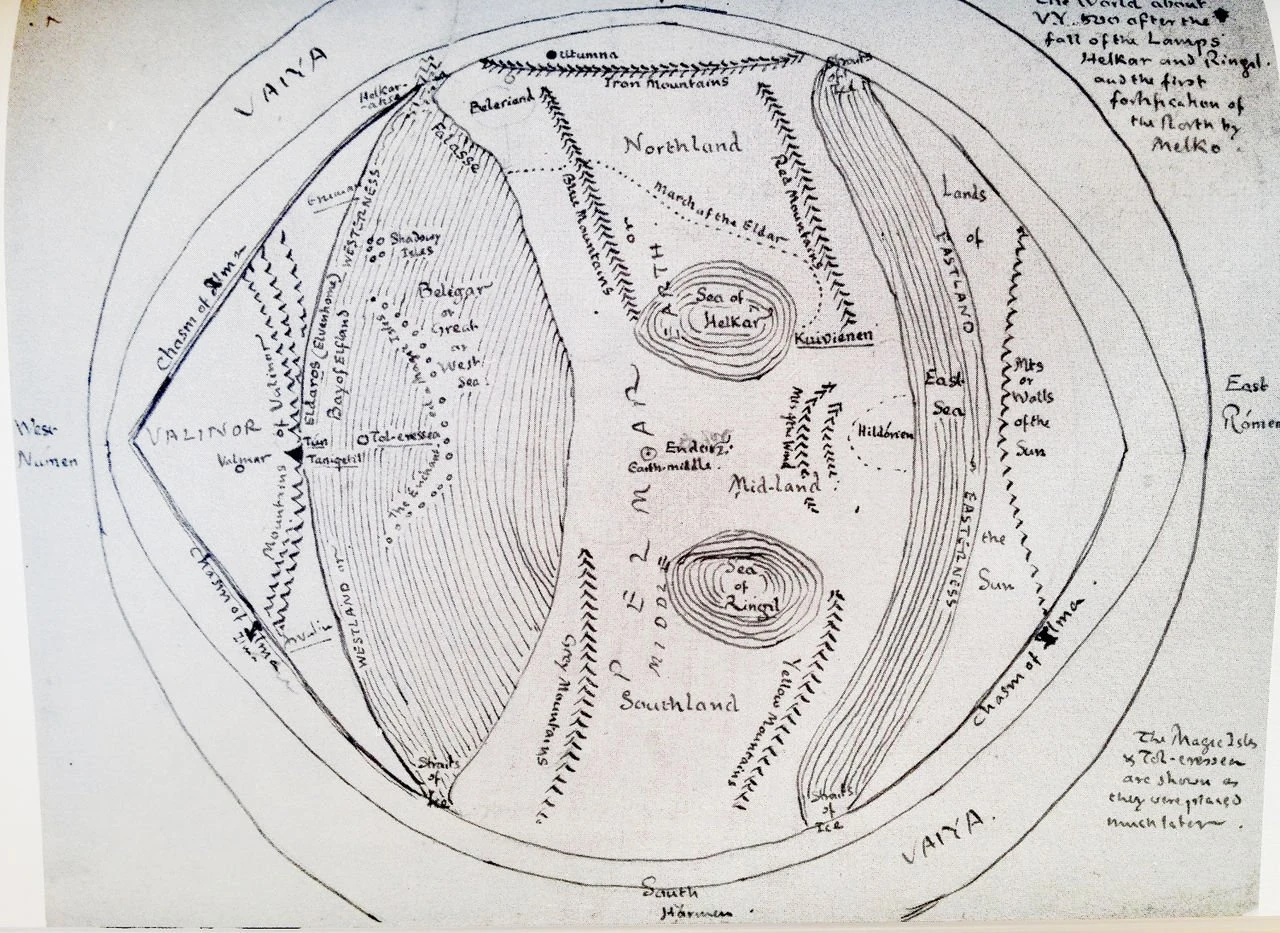 The World about
V.Y. 500 after the
fall of the Lamps
Helkar and Ringil.
and the first
fortification of
the North by
Melko.
VAIYA
Utumna
Iron Mountains
Helkar-
-akse
Straits
of
Ice
Beleriand
Falasse
Northland
Blue Mountains
Red Mountains
March of the Eldar
Lands
of
EASTLAND
WESTERNESS
Shadowy
Isles
Chasm of Ilma
Eldaros (Elvenhome)
Bay of Elfland
Belegar
or
Great
or
West
Sea
or
EARTH
Sea of
Helkar
Kuivienen
Mts
or
Walls
of the
Sun
East
Sea
West
Numen
East
Rómen
VALINOR
Valmar
Mountains of Valinor
Tun
Taniquetil
Tol-eressea
The Enchanted or Magic Isles
PELMAR
Endor
Earth-middle
Mts of the Wind
Hildórien
Mid-land
EASTERNESS
the
Sun
Chasm of Ilma
Ilma
WESTLAND or
Sea
of
Ringil
Grey Mountains
Southland
Yellow Mountains
Chasm of Ilma
Straits
of
Ice
Straits
of
Ice
VAIYA.
South
Harmen
The Magic Isles
& Tol-eressea
are shown as
they were placed
much later.